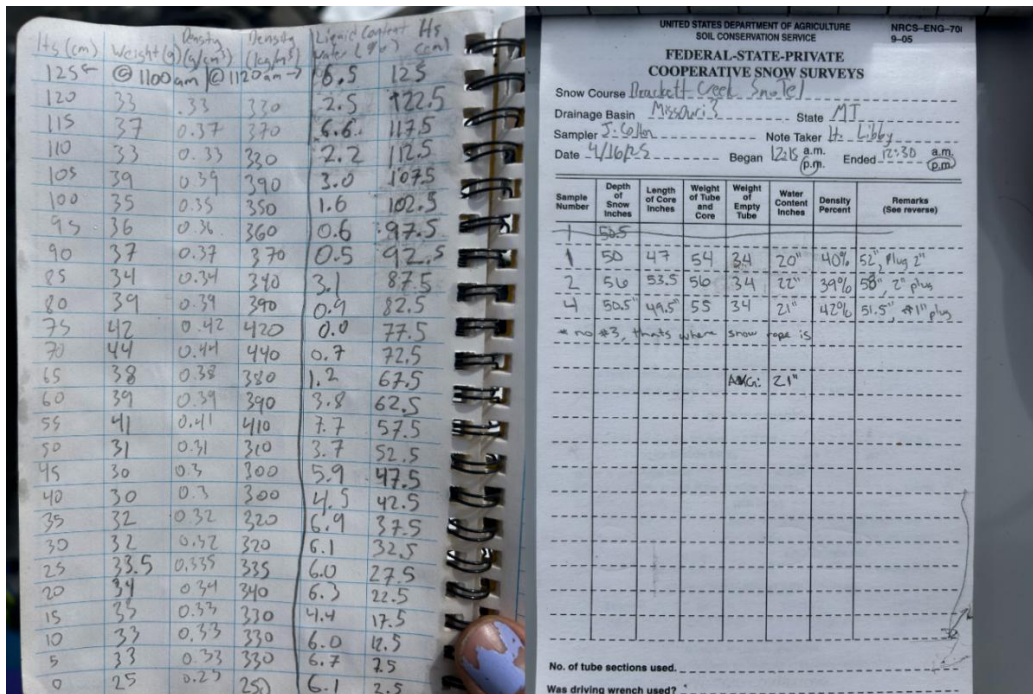 Hs (cm) Weight (g) Density (g/cm³) Density (kg/m³) Liquid Content Water (%) Hs (cm)
125 @ 1100am @ 1120am → 6.5 125
120 33 .33 330 2.5 122.5
115 37 0.37 370 6.6 117.5
110 33 0.33 330 2.2 112.5
105 39 0.39 390 3.0 107.5
100 35 0.35 350 1.6 102.5
95 36 0.36 360 0.6 97.5
90 37 0.37 370 0.5 92.5
85 34 0.34 340 3.1 87.5
80 39 0.39 390 0.9 82.5
75 42 0.42 420 0.0 77.5
70 44 0.44 440 0.7 72.5
65 38 0.38 380 1.2 67.5
60 39 0.39 390 3.8 62.5
55 41 0.41 410 7.7 57.5
50 31 0.31 310 3.7 52.5
45 30 0.3 300 5.9 47.5
40 30 0.3 300 4.5 42.5
35 32 0.32 320 6.9 37.5
30 32 0.32 320 6.1 32.5
25 33.5 0.335 335 6.0 27.5
20 34 0.34 340 6.3 22.5
15 33 0.33 330 4.4 17.5
10 33 0.33 330 6.0 12.5
5 33 0.33 330 6.7 7.5
0 25 0.25 250 6.1 2.5
UNITED STATES DEPARTMENT OF AGRICULTURE
SOIL CONSERVATION SERVICE
NRCS-ENG-70
9-05
FEDERAL-STATE-PRIVATE
COOPERATIVE SNOW SURVEYS
Snow Course Brackett Creek Snotel
Drainage Basin Missouri State MT
Sampler J. Note Taker H. Libby
Date 4/16/25 Began 12:15 a.m. p.m. Ended 12:30 a.m. p.m.
Sample Number Depth of Snow Inches Length of Core Inches Weight of Tube and Core Weight of Empty Tube Water Content Inches Density Percent Remarks (See reverse)
1 50.5
1 50 47 54 34 20" 40% 52", Plug 2"
2 56 53.5 56 34 22" 39% 58", 2" plug
4 50.5" 49.5" 55 34 21" 42% 51.5", 1" plug
* no #3, thats where snow rope is
AVG: 21"
No. of tube sections used.
Was driving wrench used?